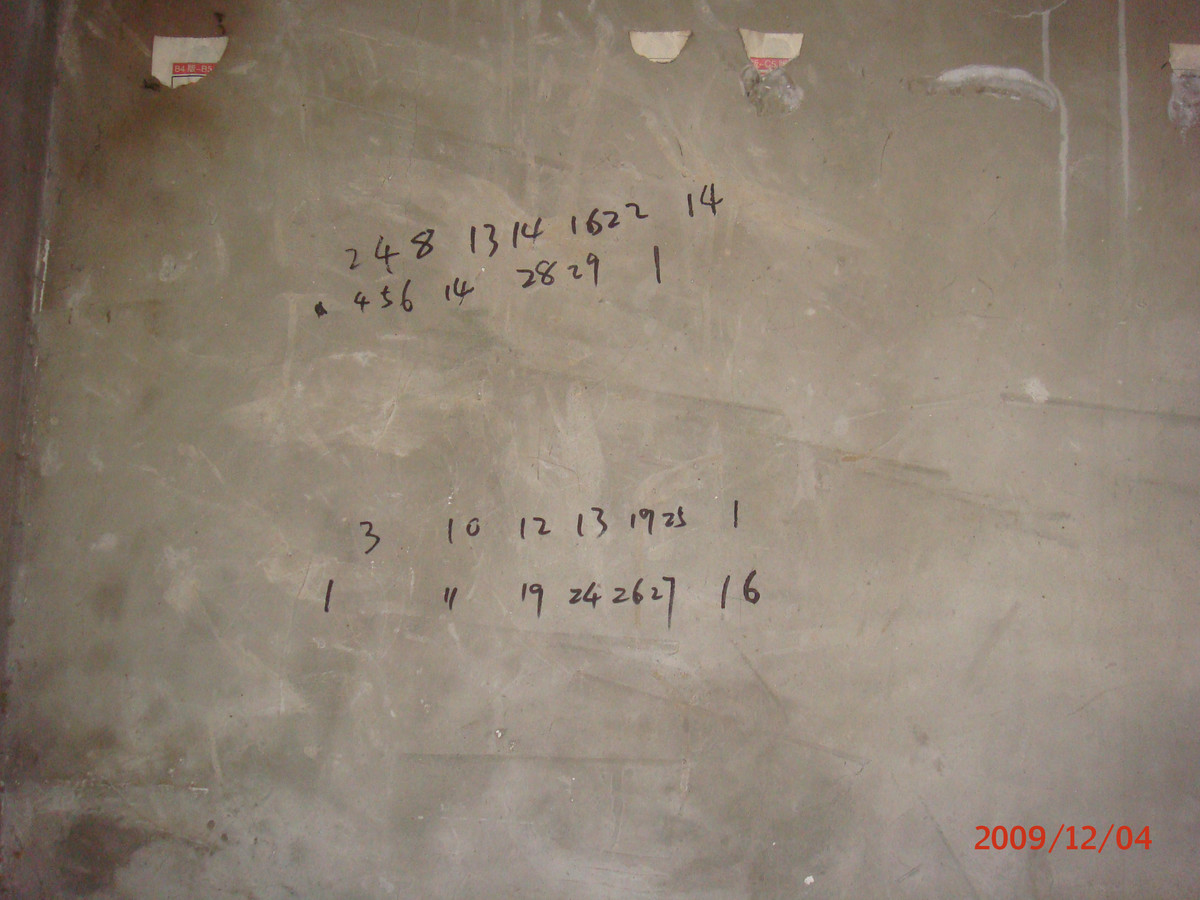 B4草-B5
-C5草
2 4 8 13 14 16 22 14
4 5 6 14 28 29 1
3 10 12 13 19 25 1
1 11 19 24 26 27 16
2009/12/04